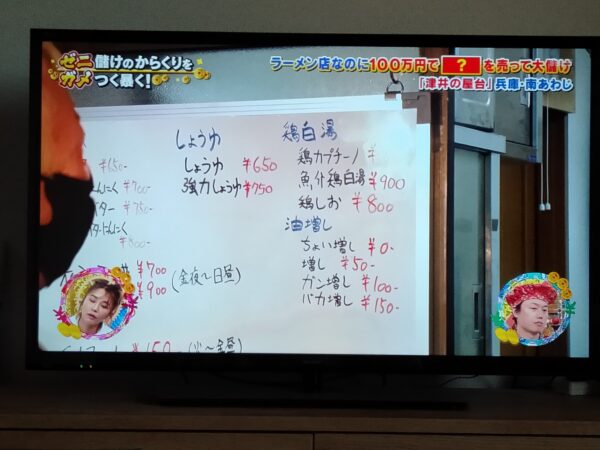 ゼニガメ
儲けのからくりをつく暴く!
ラーメン店なのに100万円で ? を売って大儲け
「津井の屋台」兵庫・南あわじ
¥650-
にんにく ¥700-
ター ¥750-
にんにく
¥800-
¥700
¥900 (金夜〜日昼)
¥150- (火〜金昼)
しょうゆ
しょうゆ ¥650
強力しょうゆ ¥750
鶏白湯
鶏カプチーノ ¥
魚介鶏白湯 ¥900
鶏しお ¥800
油増し
ちょい増し ¥0-
増し ¥50-
ガン増し ¥100-
バカ増し ¥150-